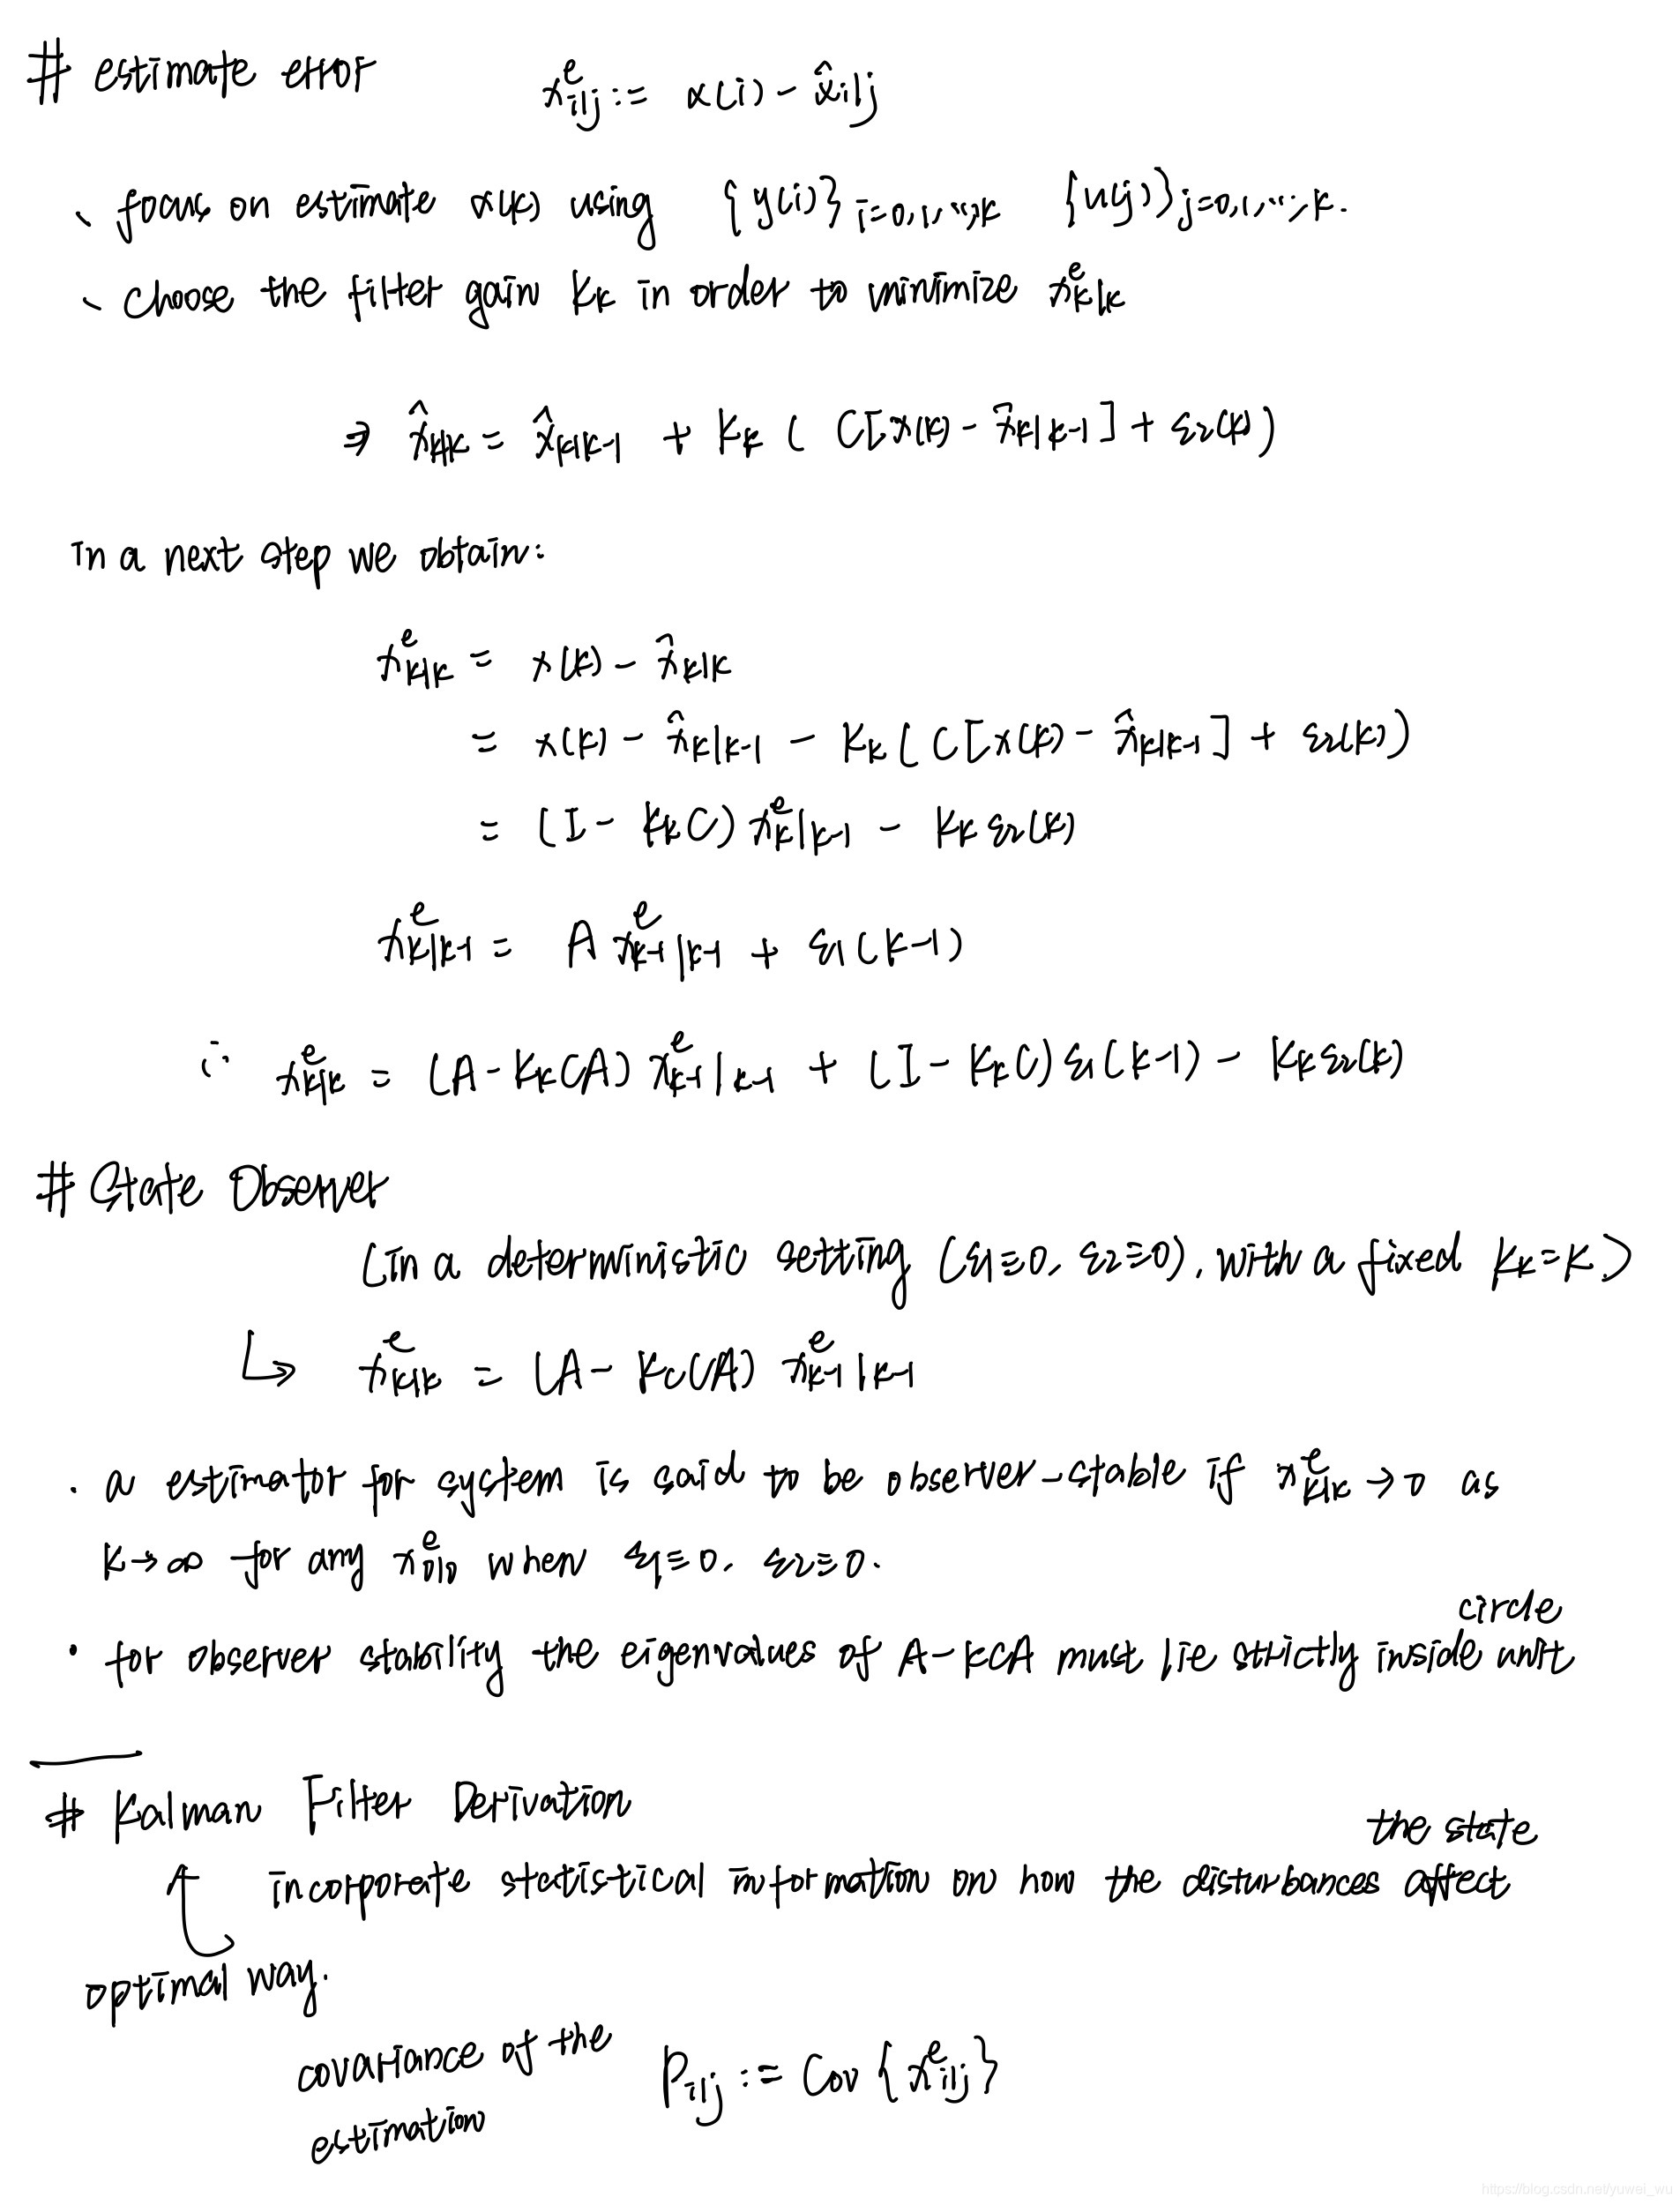 # estimate error x^e_{i|j} := x(i) - x̂_{i|j}
、 focus on estimate x(k) using {y(i)}_{i=0,1,...,k} {u(j)}_{j=0,1,...,k}.
、 choose the filter gain K_k in order to minimize x^e_{k|k}
⇒ x̂_{k|k} = x̂_{k|k-1} + K_k ( C[x(k) - x̂_{k|k-1}] + ε_2(k) )
In a next step we obtain:
x^e_{k|k} = x(k) - x̂_{k|k}
= x(k) - x̂_{k|k-1} - K_k ( C[x(k) - x̂_{k|k-1}] + ε_2(k) )
= (I - K_k C) x^e_{k|k-1} - K_k ε_2(k)
x^e_{k|k-1} = A x^e_{k-1|k-1} + ε_1(k-1)
∴ x^e_{k|k} = (A - K_k CA) x^e_{k-1|k-1} + (I - K_k C) ε_1(k-1) - K_k ε_2(k)
# State Observer
(in a deterministic setting (ε_1≡0, ε_2≡0), with a fixed K_k = K)
↳ x^e_{k|k} = (A - K_C CA) x^e_{k-1|k-1}
· a estimator for system is said to be observer-stable if x^e_{k|k} → 0 as
k → ∞ for any x^e_{0|0} when ε_1≡0, ε_2≡0.
· for observer stability the eigenvalues of A-KCA must lie strictly inside unit
circle
# Kalman Filter Derivation
incorporate statistical information on how the disturbances affect
the state
optimal way.
covariance of the
estimation
P_{i|j} := Cov {x^e_{i|j}}
https://blog.csdn.net/yuwei_wu